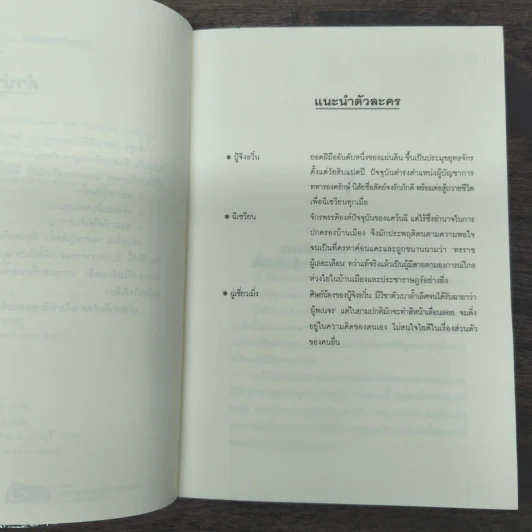 แนะนำตัวละคร
* ปู้จิงอวิ๋น ยอดฝีมืออันดับหนึ่งของแผ่นดิน ขึ้นเป็นประมุขยุทธจักร
ตั้งแต่วัยสิบแปดปี ปัจจุบันดำรงตำแหน่งผู้บัญชาการ
ทหารองครักษ์ นิสัยซื่อสัตย์จงรักภักดี พร้อมต่อสู้ถวายชีวิต
เพื่อฉีเซวียนทุกเมื่อ
* ฉีเซวียน จักรพรรดิองค์ปัจจุบันของแคว้นฉี แต่ไร้ซึ่งอำนาจในการ
ปกครองบ้านเมือง จึงมักประพฤติตนตามความพอใจ
จนเป็นที่ครหาค่อนแคะและถูกขนานนามว่า 'ทรราช
ผู้เลอะเลือน' ทว่าแท้จริงแล้วเป็นผู้มีสายตามองการณ์ไกล
ห่วงใยในบ้านเมืองและประชาราษฎร์อย่างยิ่ง
* ฉู่เซี่ยวเมิ่ง ศิษย์น้องของปู้จิงอวิ๋น มีวิชาตัวเบาล้ำเลิศจนได้รับฉายาว่า
'ผู้พเนจร' แต่ในยามปกติมักจะทำสีหน้าเลื่อนลอย จมดิ่ง
อยู่ในความคิดของตนเอง ไม่สนใจใยดีในเรื่องส่วนตัว
ของคนอื่น